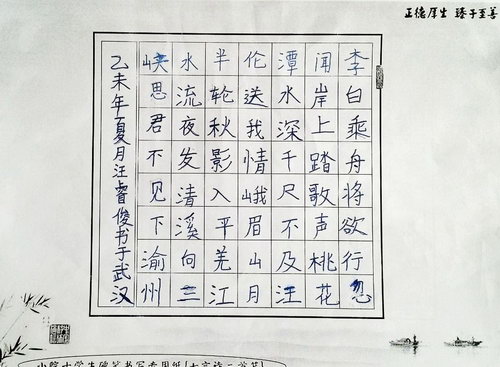 正德厚生 臻于至善
李白乘舟将欲行忽
闻岸上踏歌声桃花
潭水深千尺不及汪
伦送我情峨眉山月
半轮秋影入平羌江
水流夜发清溪向三
峡思君不见下渝州
乙未年夏月汪睿俊书于武汉